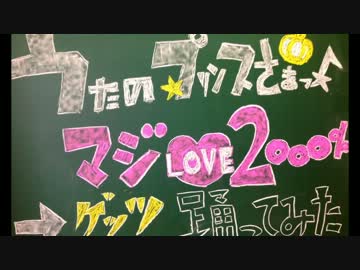 うたの☆プリンスさまっ♪
マジLOVE2000%
→ゲッツ 踊ってみた